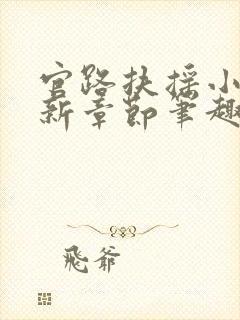 官路扶摇小
新章节笔趣
飛爺